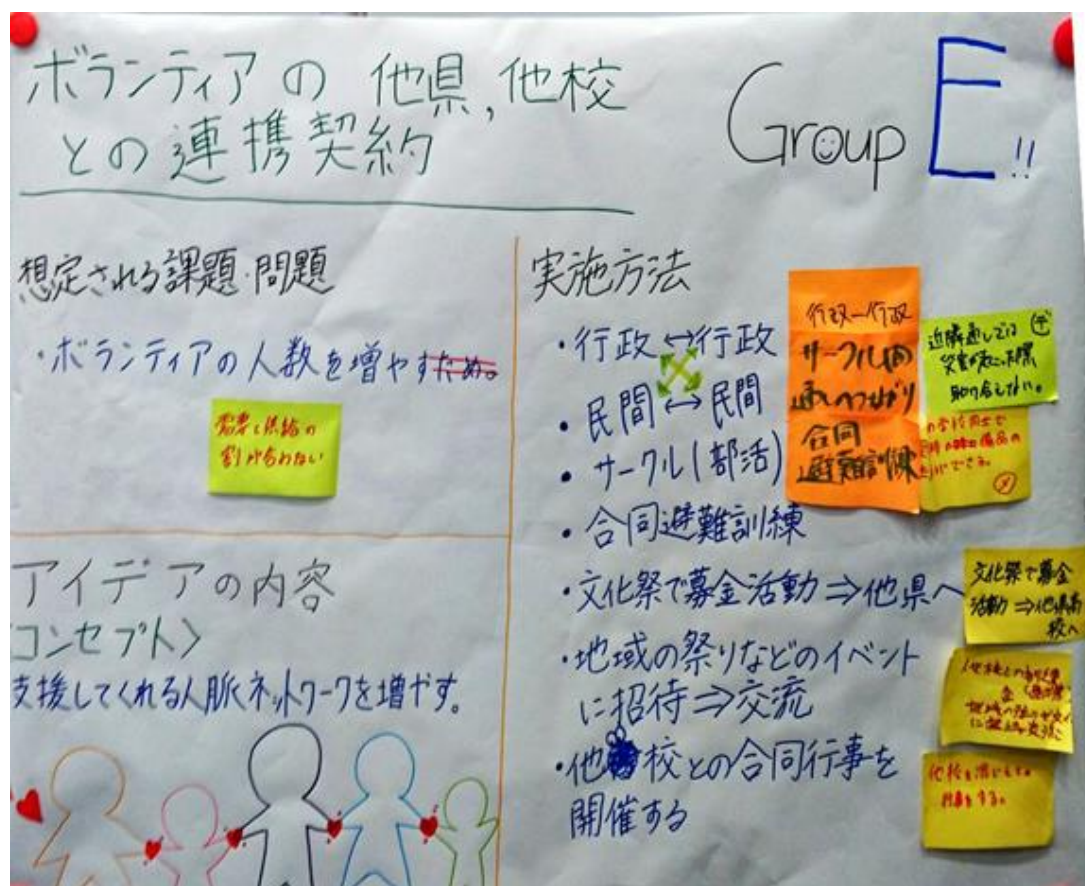 ボランティアの他県,他校
との連携契約
Group E!!
想定される課題・問題
・ボランティアの人数を増やすため。
需要と供給の
割が合わない
アイデアの内容
コンセプト〉
支援してくれる人脈ネットワークを増やす。
実施方法
・行政↔行政
・民間↔民間
・サークル(部活)
・合同避難訓練
・文化祭で募金活動⇒他県へ
・地域の祭りなどのイベント
に招待⇒交流
・他校との合同行事を
開催する
行政ー行政
サークル同
通しのつながり
合同
避難訓練
近隣通しでは
災害が起こった際
助け合えない。
文化祭で募金
活動⇒他県高
校へ
他校を混じえて
行事をする。